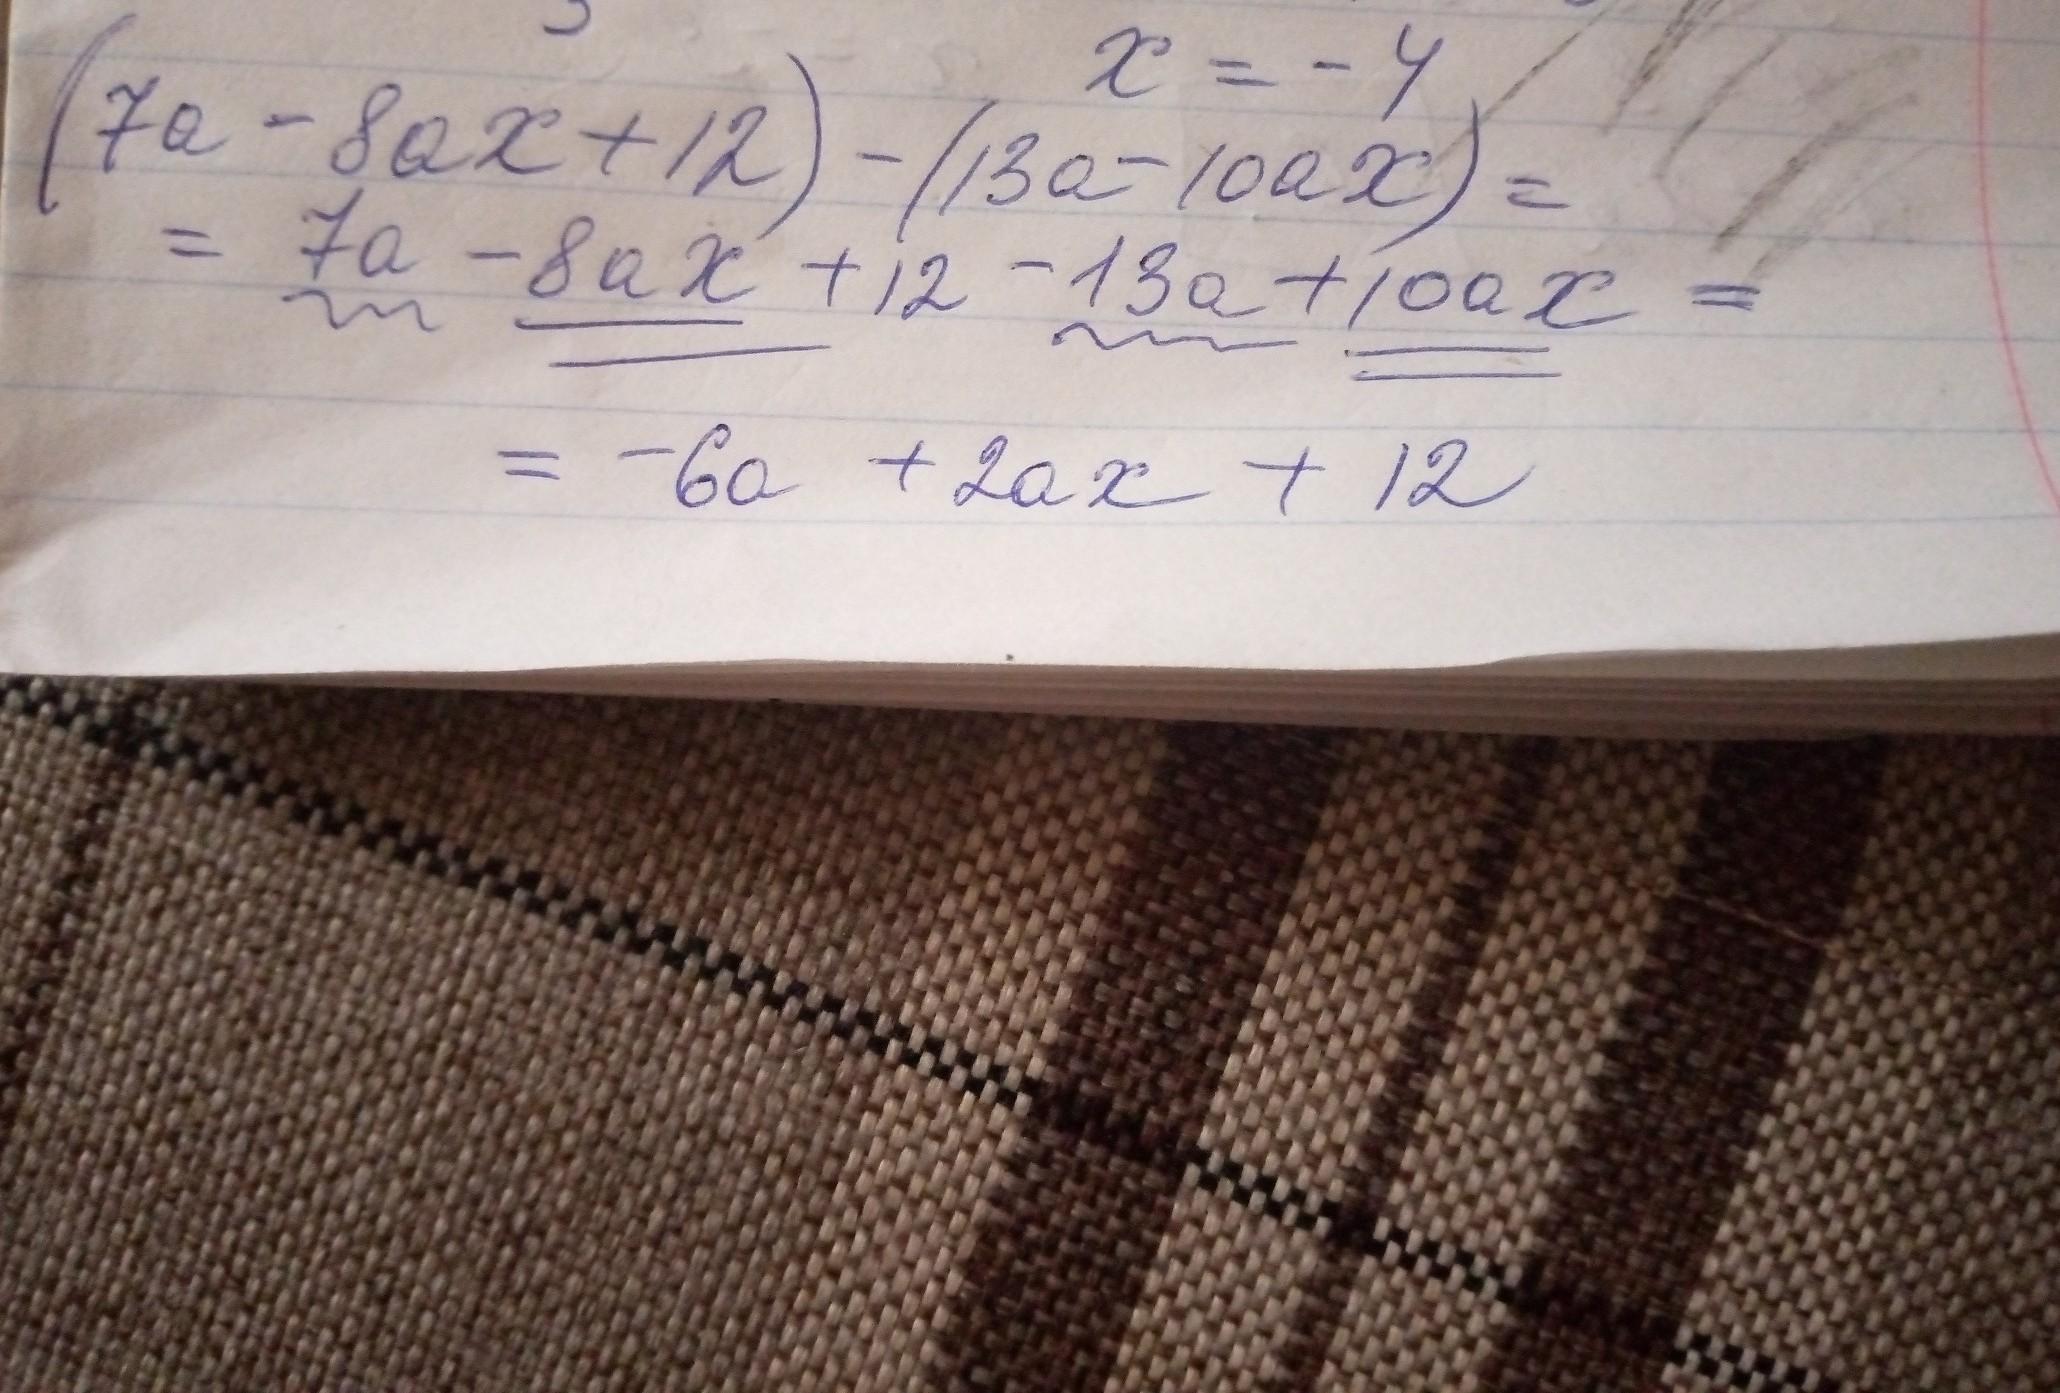 x = - 4
(7a - 8ax + 12) - (13a - 10ax) =
= 7a - 8ax + 12 - 13a + 10ax =
= -6a + 2ax + 12